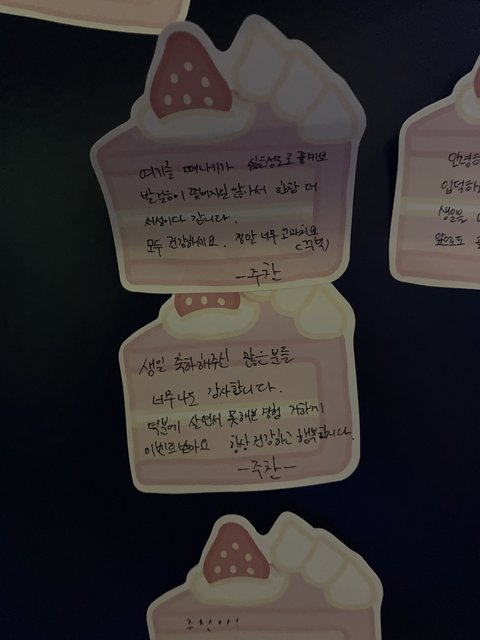 여기를 떠나기가 싫을정도로 좋네요
발걸음이 떨어지질 않아서 한참 더
서성이다 갑니다.
모두 건강하세요. 정말 너무 고마워요
(꾸벅)
-주찬
생일 축하해주신 많은분들
너무나도 감사합니다.
덕분에 살면서 못해본 경험
이벤트 받아요 항상 건강하고 행복합시다.
-주찬-
안녕하
입덕하
생일
앞으로도